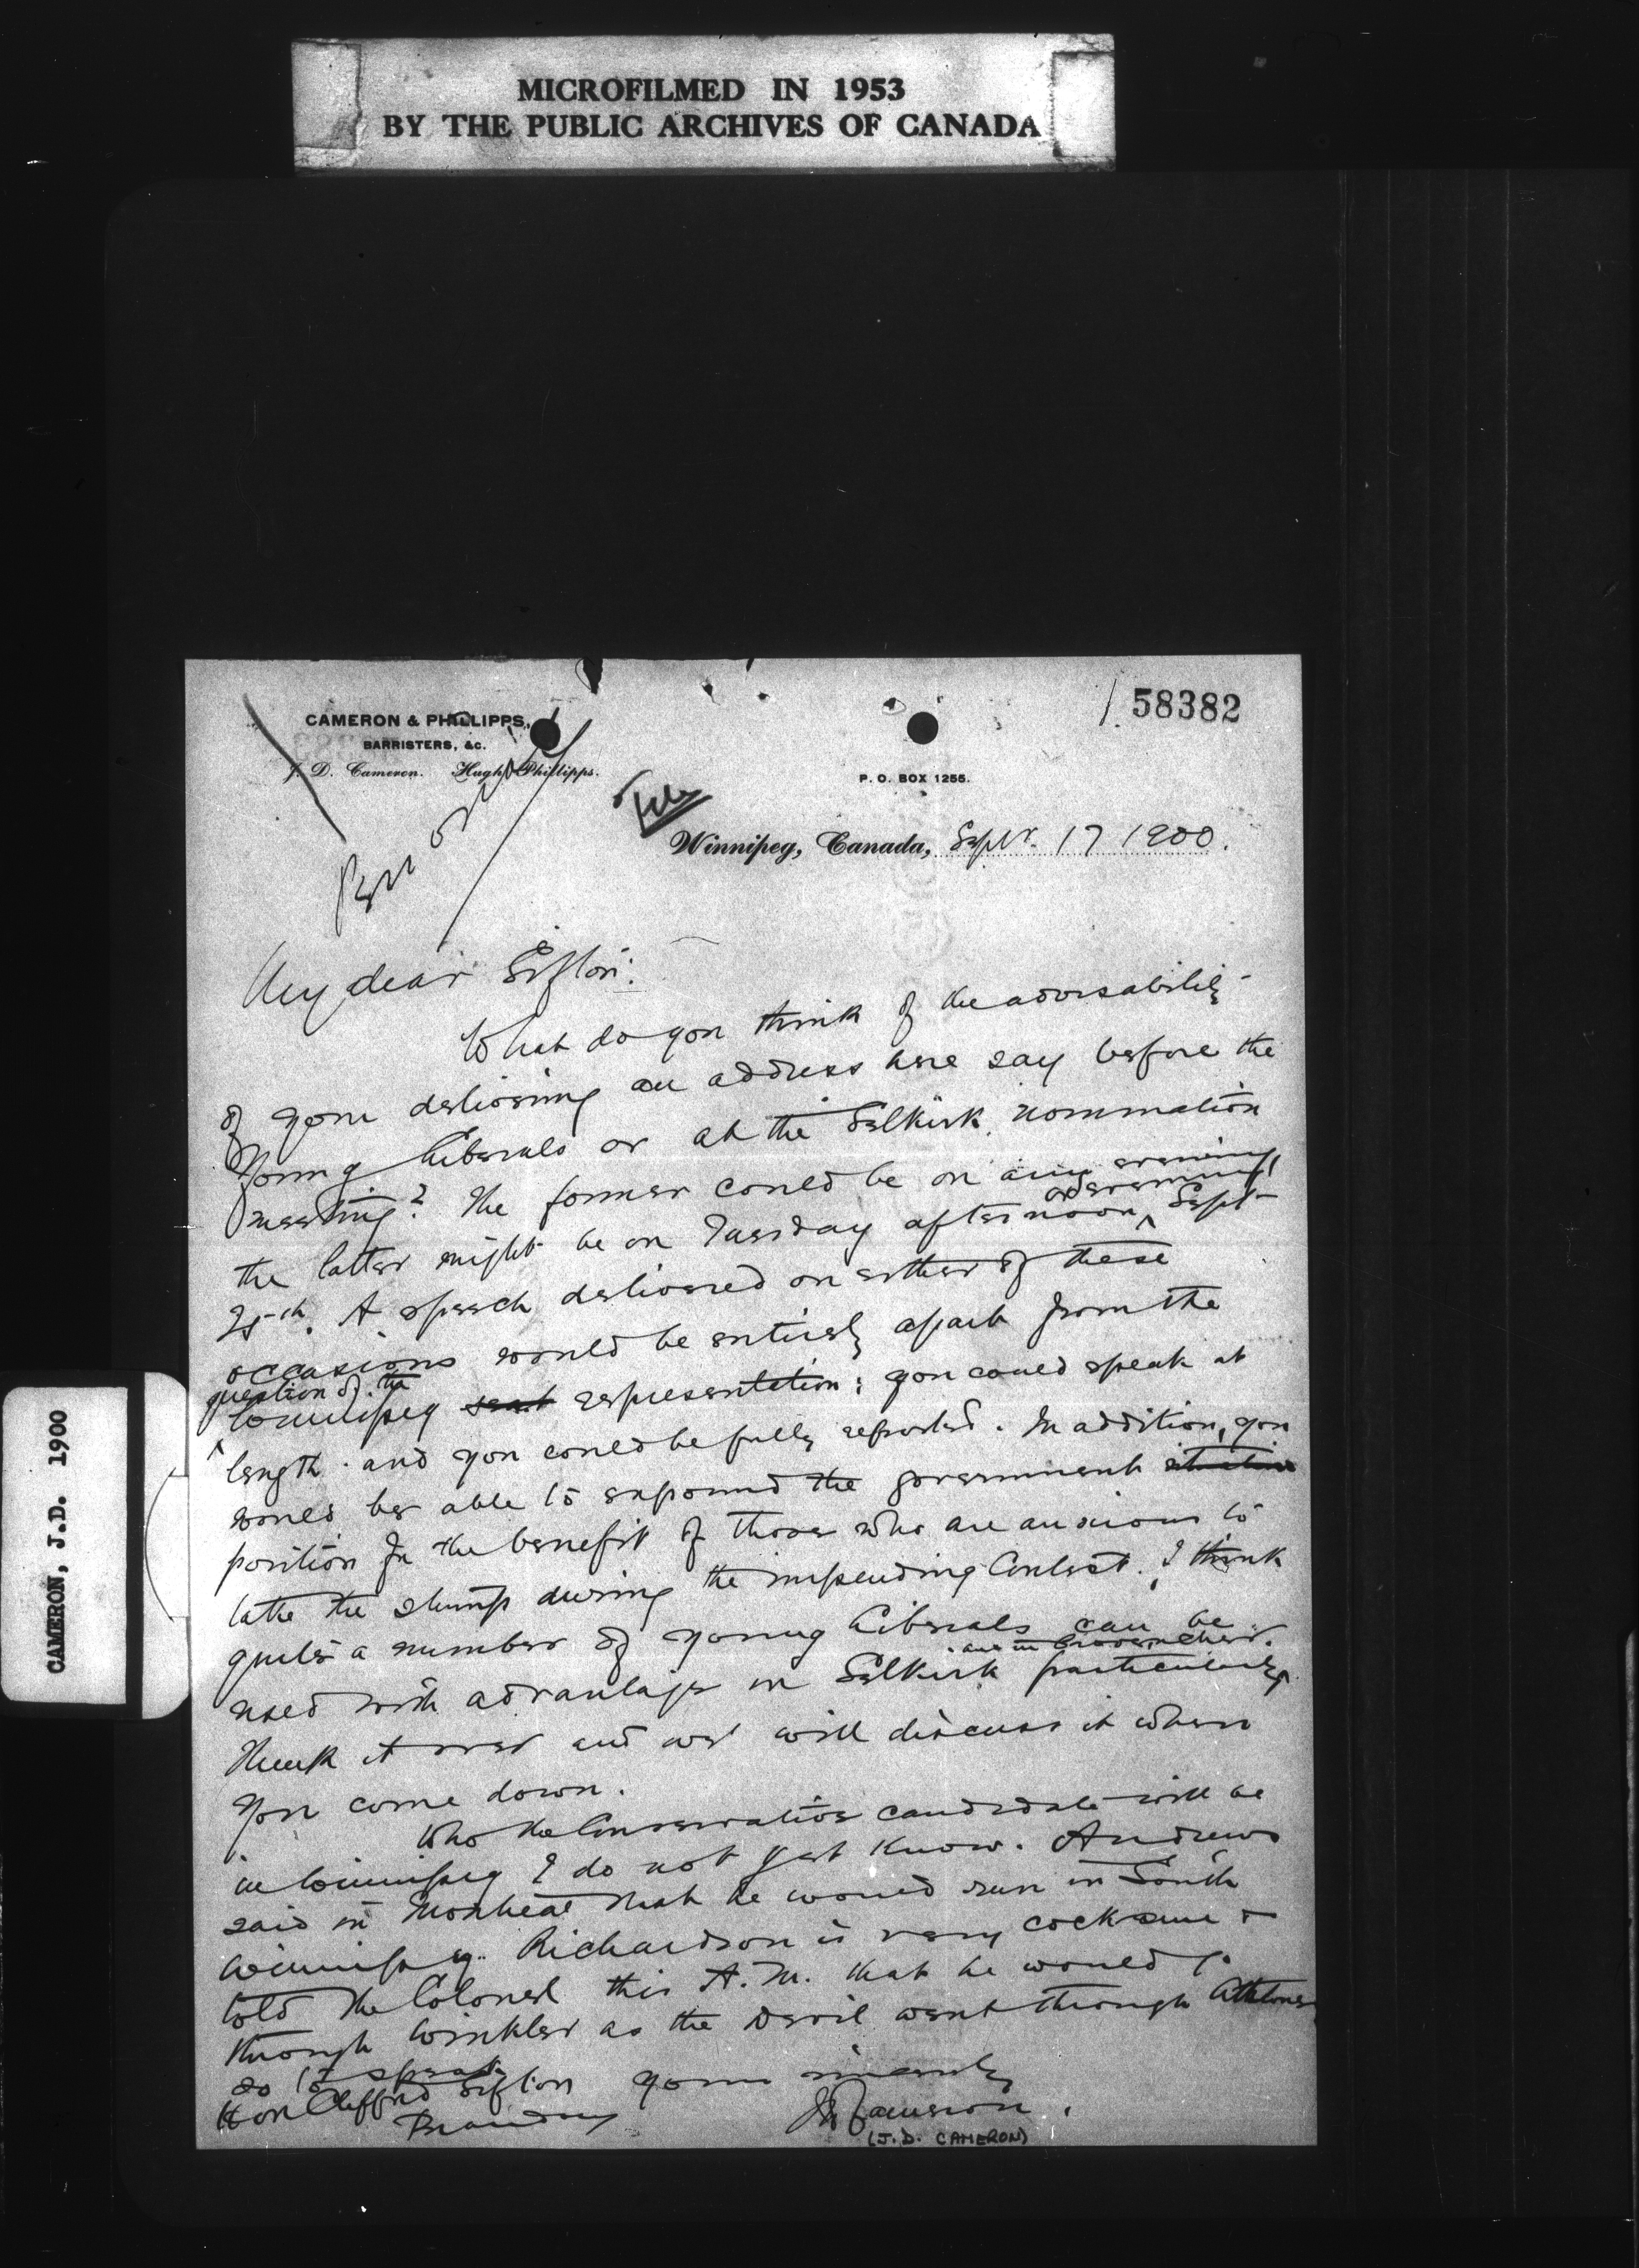 MICROFILMED IN 1953
BY THE PUBLIC ARCHIVES OF CANADA
CAMERON, J.D. 1900
58382
CAMERON & PHILLIPPS,
BARRISTERS, &c.
J. D. Cameron. Hugh Phillipps.
P. O. BOX 1255.
File
Winnipeg, Canada, Sept. 17 1900.
My dear Sifton:
What do you think of the advisability
of your delivering an address here say before the
Young Liberals or at the Selkirk nomination
meeting? The former could be on any evening,
the latter might be on Tuesday afternoon or evening Sept
25th. A speech delivered on either of these
occasions would be entirely apart from the
question of the
Winnipeg seat representation: you could speak at
length and you could be fully reported. In addition, you
would be able to expound the government situation
position for the benefit of those who are anxious to
take the stump during the impending Contest. I think
quite a number of young Liberals can be
used with advantage in Selkirk and in Provencher particularly.
Think it over and we will discuss it when
you come down.
Who the Conservative candidate will be
in Winnipeg I do not yet know. Andrews
said in Montreal that he would run in South
Winnipeg. Richardson is very cocksure &
told the Colonel this A.M. that he would go
through Winkler as the Devil went through Athlone
so to speak
Yours sincerely
Hon Clifford Sifton
Brandon
JD Cameron.
(J.D. CAMERON)